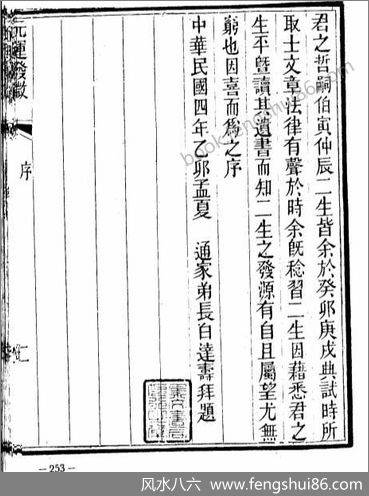 君之哲嗣伯寅仲辰二生皆余於癸卯庚戌典試時所
取士文章法律有聲於時余旣稔習二生因藉悉君之
生平曁讀其遺書而知二生之發源有自且屬望尤無
窮也因喜而爲之序
中華民國四年乙卯孟夏　通家弟長白達壽拜題
元運發微
序
—253—
book.fengshui86.com
风水八六 www.fengshui86.com